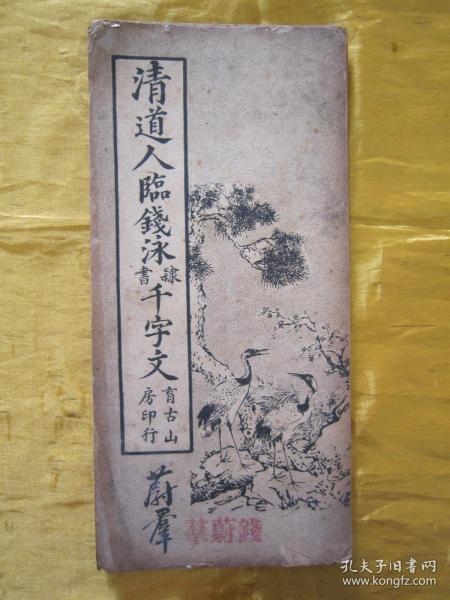 清道人臨錢泳隸書千字文
育古山
房印行
蔚羣
錢蔚羣
孔夫子旧书网
www.kongfz.com